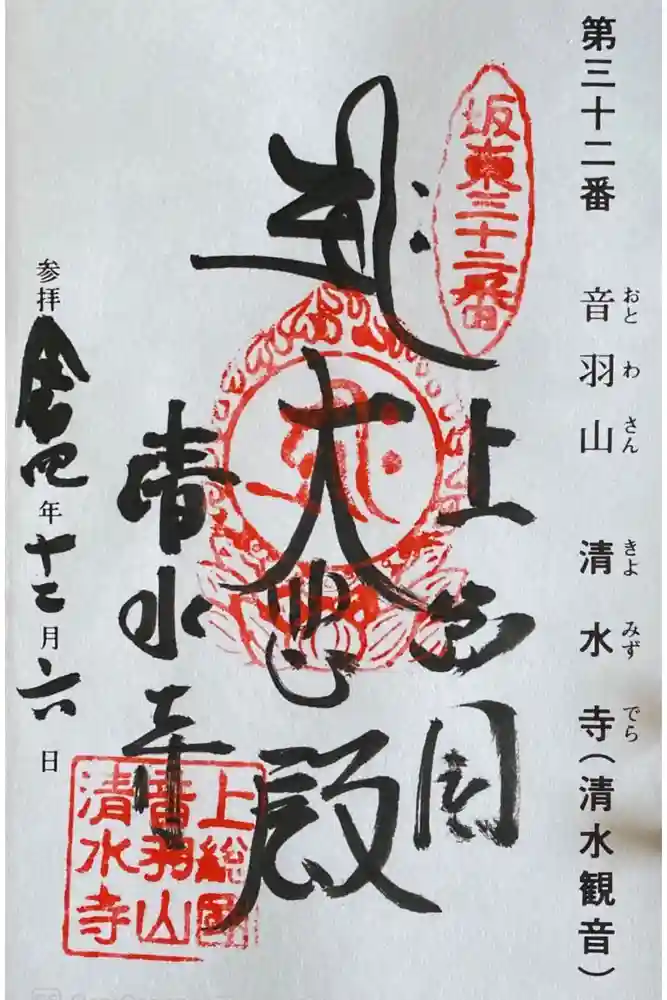 第三十二番 音羽山 清水寺(清水観音)
おと わ さん きよ みず でら
坂東三十二番
上総国
大悲殿
清水寺
上総國
音羽山
清水寺
参拝 令四年十二月六日